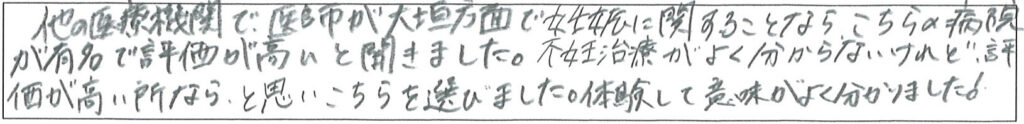 他の医療機関で、医師が大垣方面で妊娠に関することなら、こちらの病院
が有名で評価が高いと聞きました。不妊治療がよく分からないけれど、評
価が高い所なら、と思いこちらを選びました。体験して意味がよく分かりました!